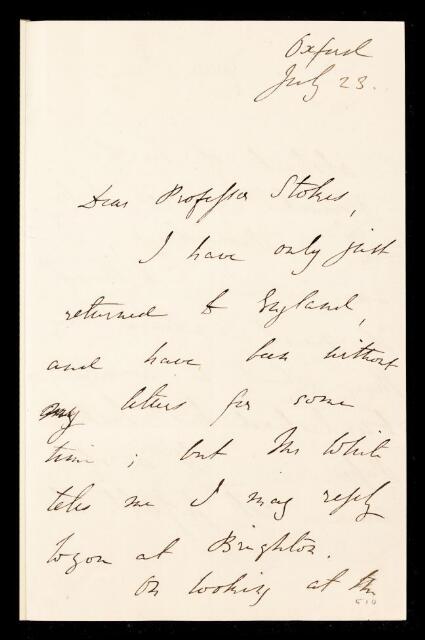 Oxford
July 23.
Dear Professor Stokes,
I have only just
returned to England,
and have been without
my letters for some
time; but Mr White
tells me I may reply
to you at Brighton.
On looking at the